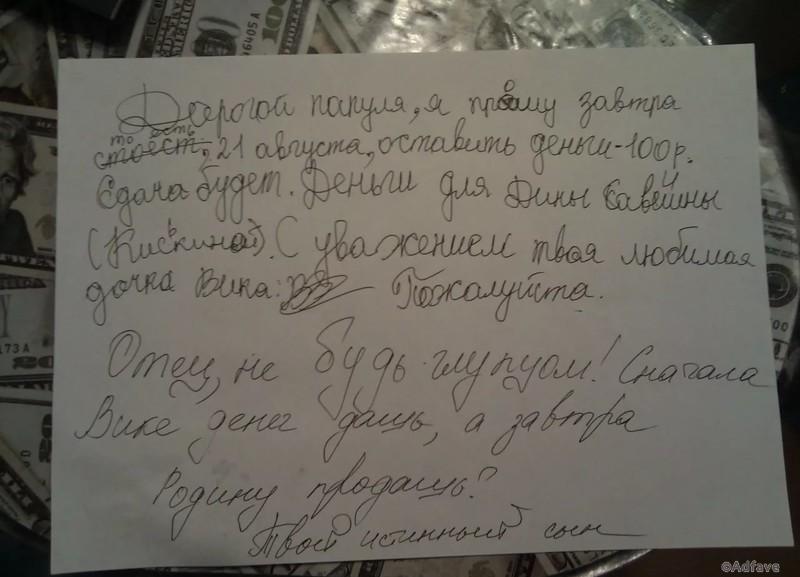 Дорогой папуля, я прошу завтра
то есть 21 августа, оставить деньги-100р.
Сдача будет. Деньги для Дины
(Киськиной). С уважением твоя любимая
дочка Вика. Пожалуйста.
Отец, не будь глупцом! Сначала
Вике денег дашь, а завтра
Родину продашь?
Твой истинный сын
©Adfave